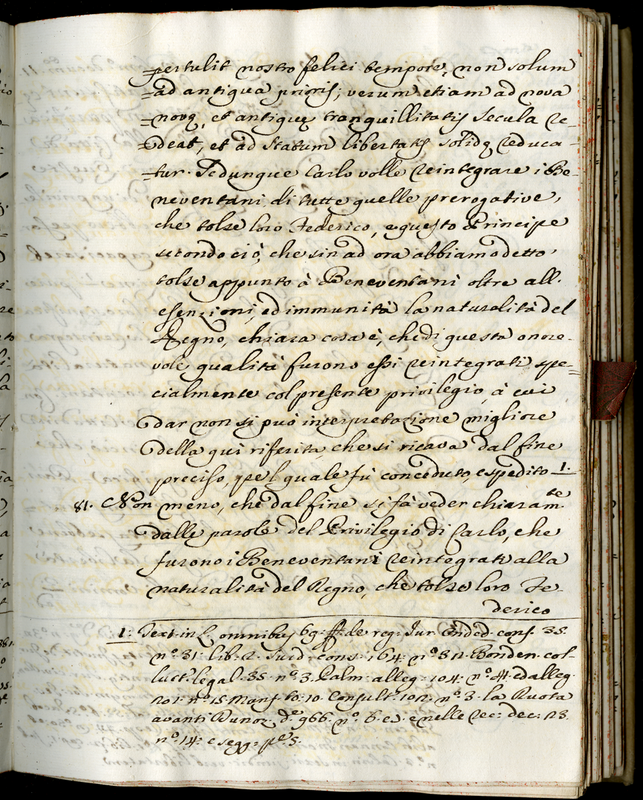 pertulit nostro felici tempore, non solum
ad antiqua prioris; verum etiam ad nova
novq, et antiquę tranquillitatis secula re=
=deat, et ad statum libertatis solidę reduca
=tur. Se dunque Carlo volle reintegrare i Be=
neventani di tutte quelle prerogative,
che tolse loro Federico, e questo Principe
secondo ciò, che sin ad ora abbiamo detto
tolse appunto à Beneventani oltre all'
essenzioni, ed immunità la naturalità del
Regno, chiara cosa è, che di questa onore
vole qualità furono essi reintegrati spe=
cialmente col presente privilegio, à cui
dar non si può interpretazione migliore
della qui riferita che si ricava dal fine
preciso, pel quale fù conceduto, e spedito 1.
81. Non meno, che dal fine si fà veder chiaram.te
dalle parole del Privilegio di Carlo, che
furono i Beneventani reintegrati alla
naturalità del Regno, che tolse loro Fe=
derico
1. Text. in L. omnibus 69. ff. de reg. Jur. cons. 35.
n.º 31. lib. 2. Surd. cons. 164. n.º 52. Bonden. col
luct. legal. 35. n.º 3. Palm. alleg. 104. n.º 4. ed alleg.
201. n.º 15 to. 10. Consult. 102. n.º 3. la Ruota
avanti d.º 966. n.º 5. e nelle rec. dec. 23.
n.º 14. e segg. p.e 3.